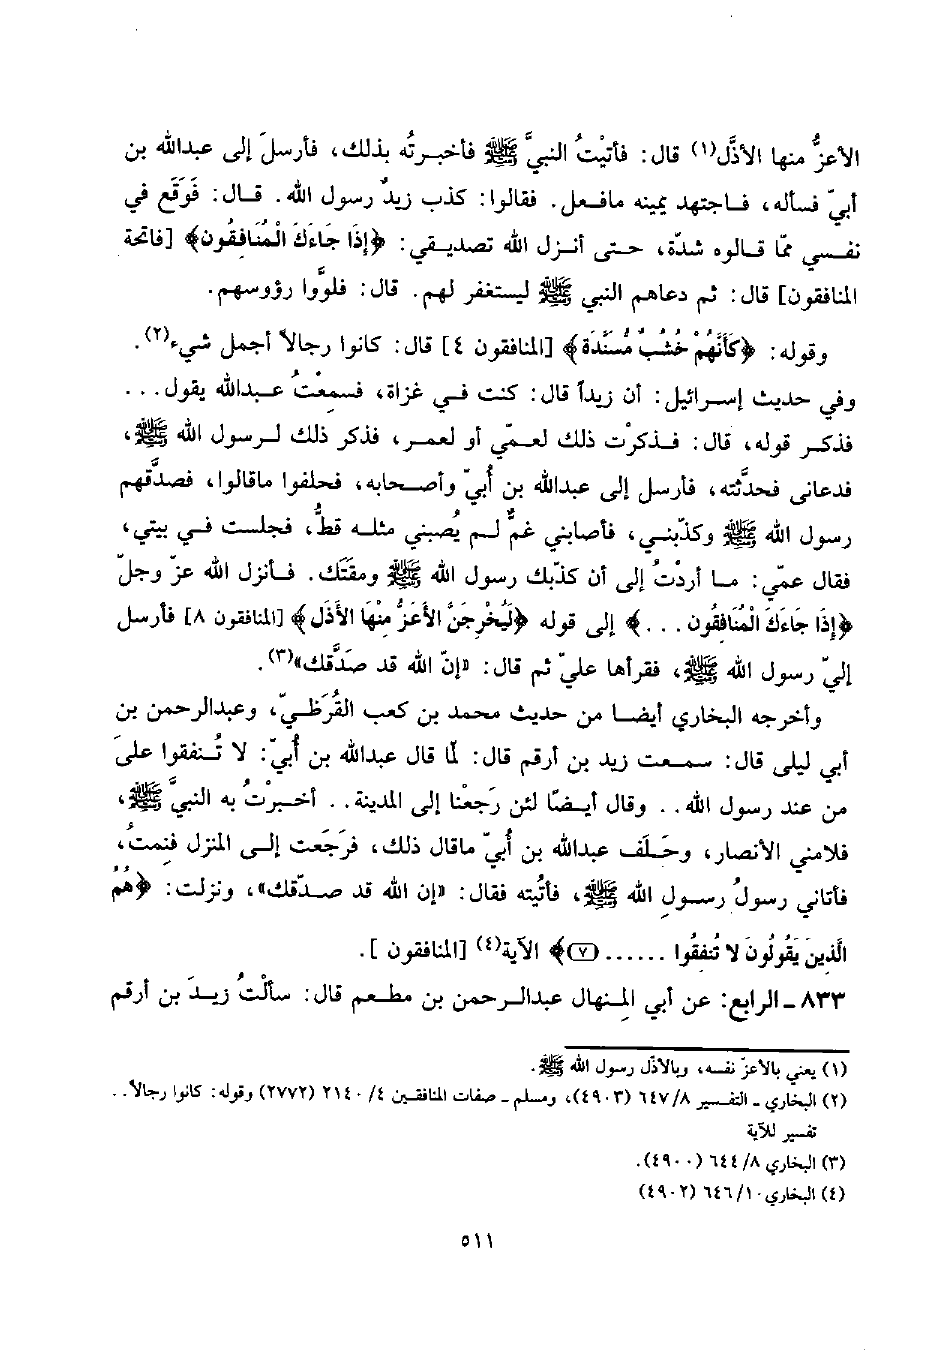 الأعزُّ منها الأذَّل(١) قال: فأتيْتُ النبيَّ ﷺ فأخبرتُه بذلك، فأرسلَ إلى عبدالله بن
أبيّ فسأله، فاجتهد يمينه مافعل. فقالوا: كذب زيدٌ رسول الله. قال: فَوَقَع في
نفسي ممّا قالوه شدّة، حتى أنزل الله تصديقي: ﴿إذَا جَاءَكَ الْمُنَافِقُون﴾ [فاتحة
المنافقون] قال: ثم دعاهم النبي ﷺ ليستغفر لهم. قال: فلوَّوا رؤوسهم.
وقوله: ﴿كَأَنَّهُمْ خُشُبٌ مُسَنَّدَة﴾ [المنافقون ٤] قال: كانوا رجالاً أجمل شيء(٢).
وفي حديث إسرائيل: أن زيداً قال: كنت في غزاة، فسمعْتُ عبدالله يقول...
فذكر قوله، قال: فذكرْت ذلك لعمّي أو لعمر، فذكر ذلك لرسول الله ﷺ،
فدعانى فحدَّثته، فأرسل إلى عبدالله بن أُبيّ وأصحابه، فحلفوا ماقالوا، فصدَّقهم
رسول الله ﷺ وكذّبني، فأصابني غمٌّ لم يُصبني مثله قطُّ، فجلست في بيتي،
فقال عمّي: ما أردْتُ إلى أن كذّبك رسول الله ﷺ ومقتَك. فأنزل الله عزّ وجلّ
﴿إذَا جَاءَكَ الْمُنَافِقُون ...﴾ إلى قوله ﴿لَيُخْرِجَنَّ الأَعَزُّ مِنْهَا الأَذَل﴾ [المنافقون ٨] فأرسل
إليّ رسول الله ﷺ، فقرأها عليّ ثم قال: «إنّ الله قد صَدَّقك»(٣).
وأخرجه البخاري أيضا من حديث محمد بن كعب القُرَظيّ، وعبدالرحمن بن
أبي ليلى قال: سمعت زيد بن أرقم قال: لمّا قال عبدالله بن أُبيّ: لا تُنفقوا علىَ
من عند رسول الله.. وقال أيضًا لئن رَجعْنا إلى المدينة.. أخبرْتُ به النبيَّ ﷺ،
فلامني الأنصار، وحَلَف عبدالله بن أُبيّ ماقال ذلك، فرَجَعت إلى المنزل فنِمتُ،
فأتاني رسولُ رسولِ الله ﷺ، فأتيته فقال: «إن الله قد صدّقك»، ونزلت: ﴿هُمُ
الَّذِينَ يَقُولُونَ لا تُنفِقُوا ...... (٧)﴾ الآية(٤) [المنافقون ].
٨٣٣ - الرابع: عن أبي المنهال عبدالرحمن بن مطعم قال: سألْتُ زيدَ بن أرقم
(١) يعني بالأعزّ نفسه، وبالأذّل رسول الله ﷺ.
(٢) البخاري - التفسير ٨/ ٦٤٧ (٤٩٠٣)، ومسلم - صفات المنافقين ٤/ ٢١٤٠ (٢٧٧٢) وقوله: كانوا رجالاً..
تفسير للآية
(٣) البخاري ٨/ ٦٤٤ (٤٩٠٠).
(٤) البخاري ١٠/ ٦٤٦ (٤٩٠٢)
٥١١